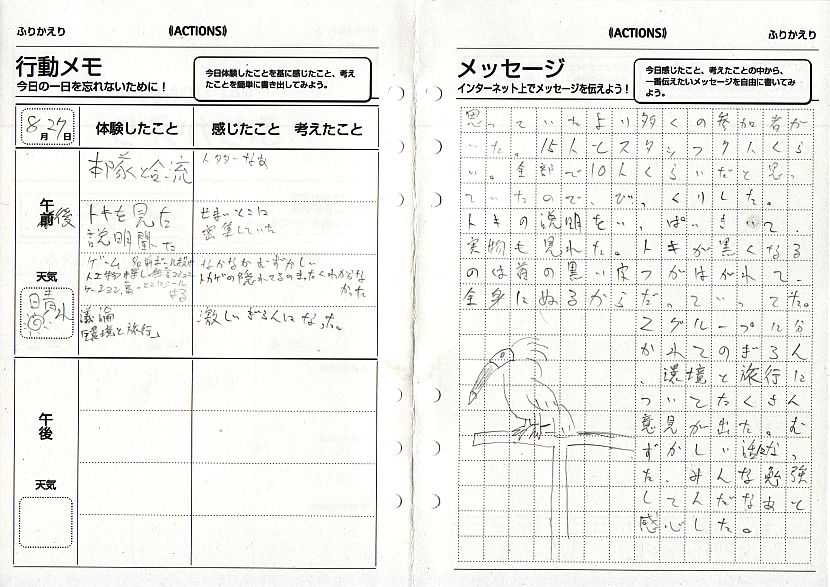 ふりかえり
《ACTIONS》
行動メモ
今日の一日を忘れないために！
今日体験したことを基に感じたこと、考え
たことを簡単に書き出してみよう。
8月27日
体験したこと
感じたこと 考えたこと
午前後
本隊と合流
トキを見た
説明聞いた
せまいとこに
密集していた
ゲーム
なかなかむずかしい
トカゲの隠れてるのまったくわかんな
かった
天気
晴れ
議論
「環境と旅行」
激しいぎろんになった。
午後
天気
《ACTIONS》
ふりかえり
メッセージ
インターネット上でメッセージを伝えよう！
今日感じたこと、考えたことの中から、
一番伝えたいメッセージを自由に書いてみ
よう。
思っていたより多くの参加者が
いた。15人とスタッフ9人くら
い。全部で10人くらいだと思っ
ていたので、びっくりした。
トキの説明をいっぱいきいて、
実物も見れた。トキが黒くなる
のは首の黒い皮っかはがれて、
全身にぬるからだっていってた。
2グループに分
かれてのぎろん
、環境と旅行に
ついてたくさん
意見が出た。む
ずかしい話だっ
た。みんな勉強
してんだなあと
感心した。